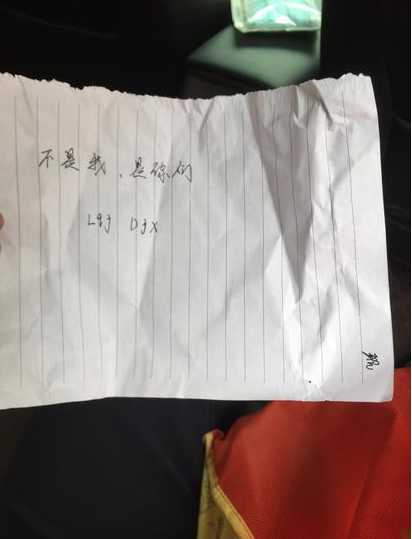 不是我、是你们
Lqj Djx